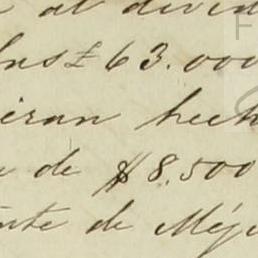 al divid
£63.000
eran hech
de $8.500
nte de Méji